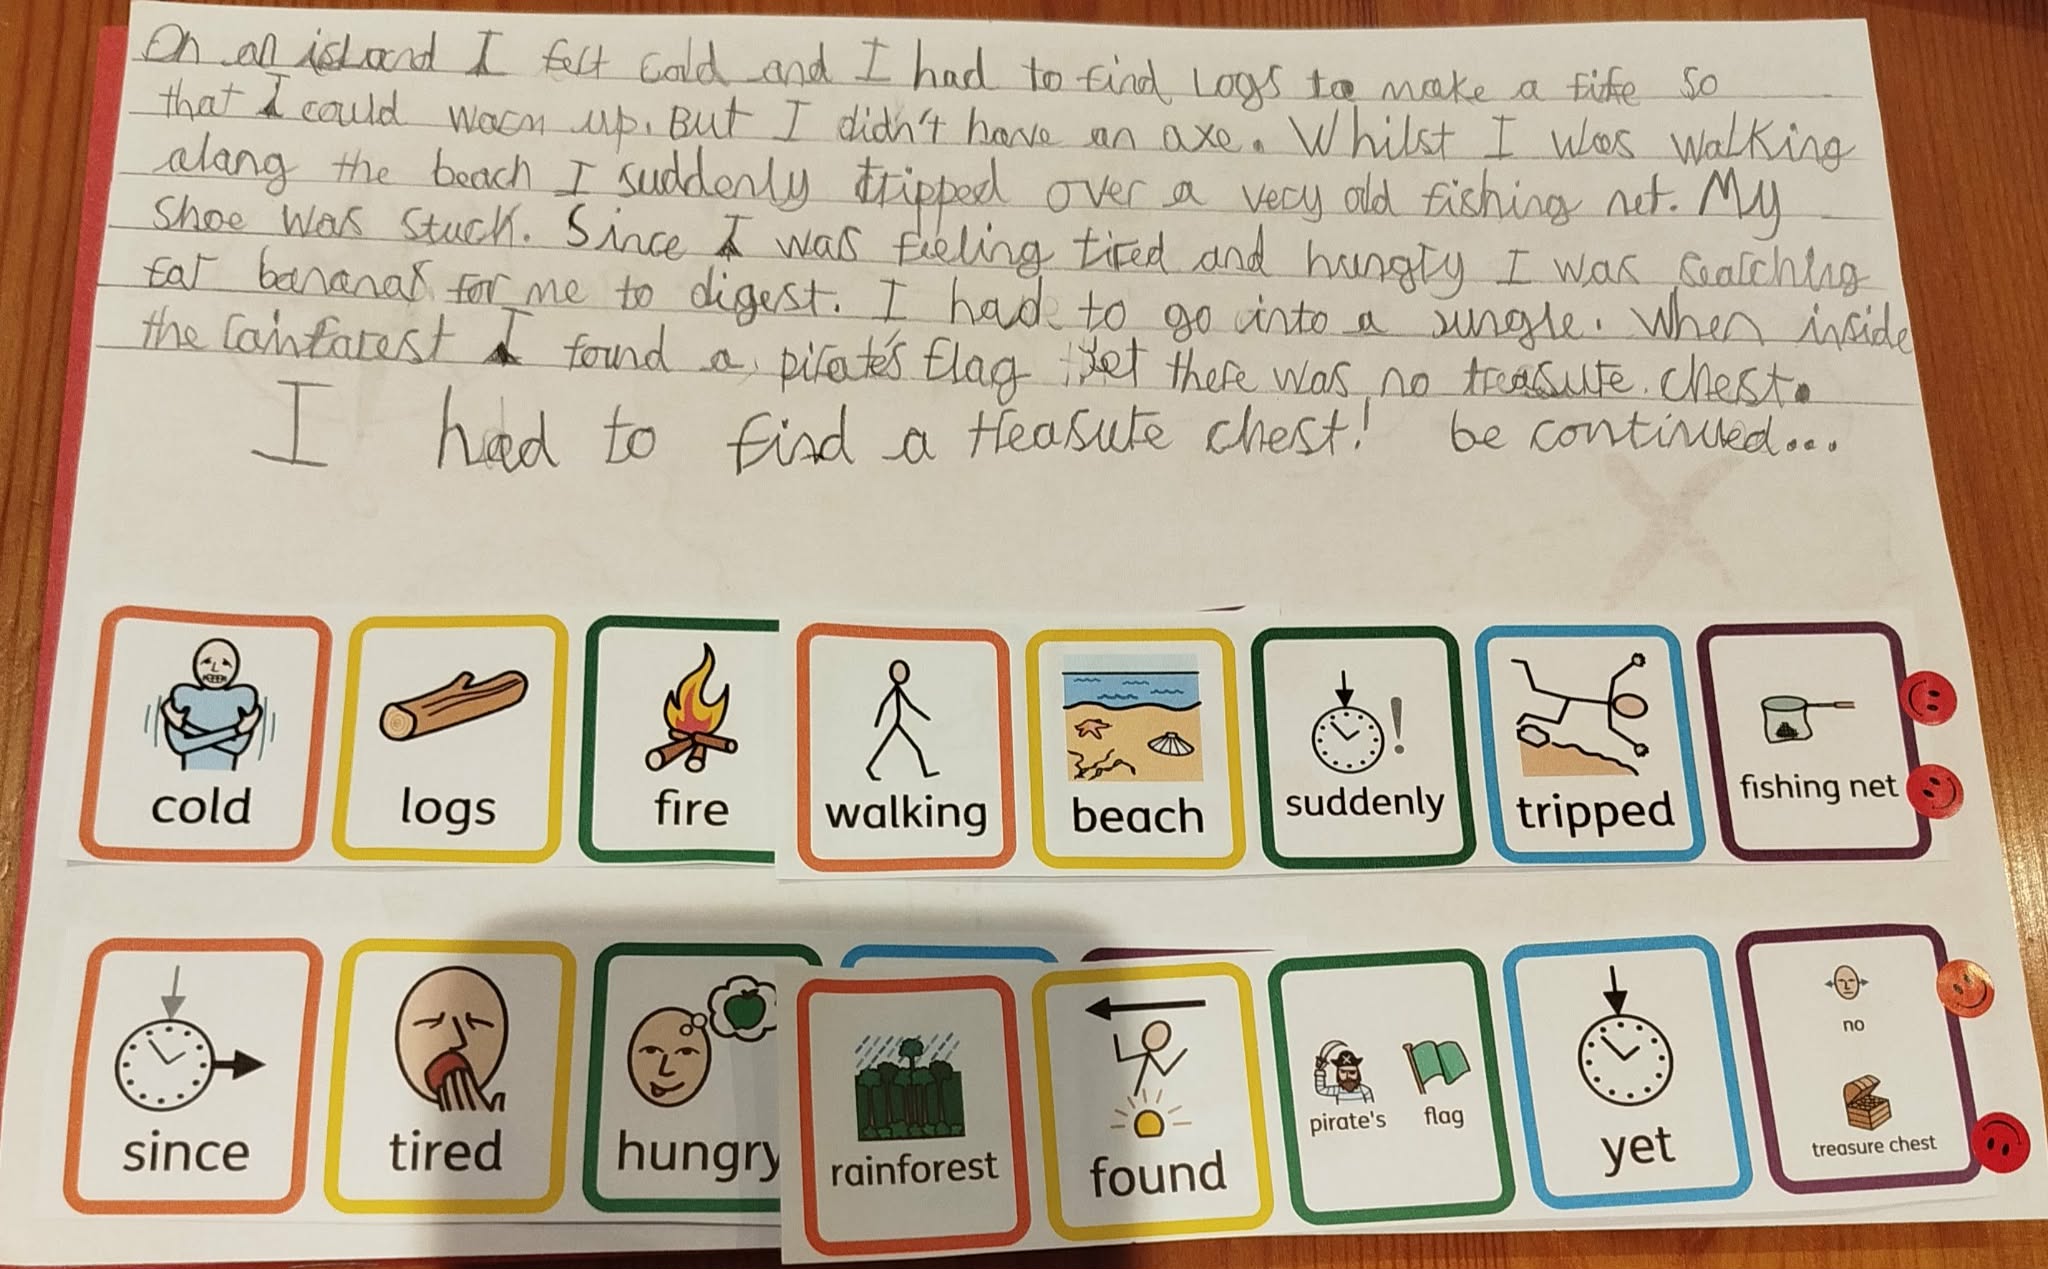 On an island I felt cold and I had to find logs to make a fire so
that I could warm up. But I didn't have an axe. Whilst I was walking
along the beach I suddenly tripped over a very old fishing net. My
shoe was stuck. Since I was feeling tired and hungry I was searching
for bananas for me to digest. I had to go into a jungle. When inside
the rainforest I found a pirate's flag yet there was no treasure chest.
I had to find a treasure chest! be continued...
cold logs fire walking beach suddenly tripped fishing net
since tired hungry rainforest found pirate's flag yet no treasure chest